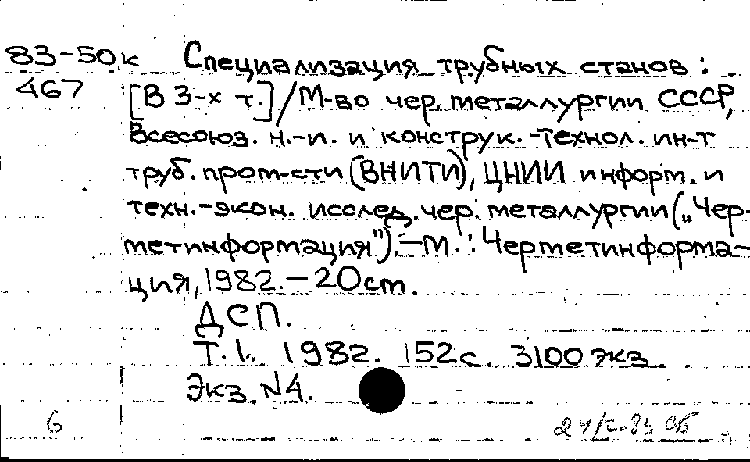 83-50к Специализация трубных станов :
467 [В 3-х т.] / М-во чер. металлургии СССР,
Всесоюз. н.-и. и конструк.-технол. ин-т
труб. пром-сти (ВНИТИ), ЦНИИ информ. и
техн.-экон. исслед. чер. металлургии („Чер-
метинформация"). – М. : Черметинформа-
ция, 1982. – 20 cm.
ДСП.
Т. 1. 1982. 152 с. 3100 экз.
Экз. N 4.
6